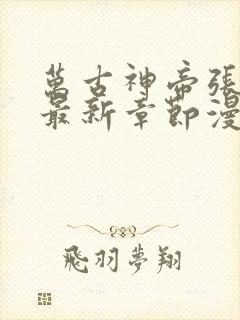 萬古神帝張
最新章節漫
飛羽夢翔